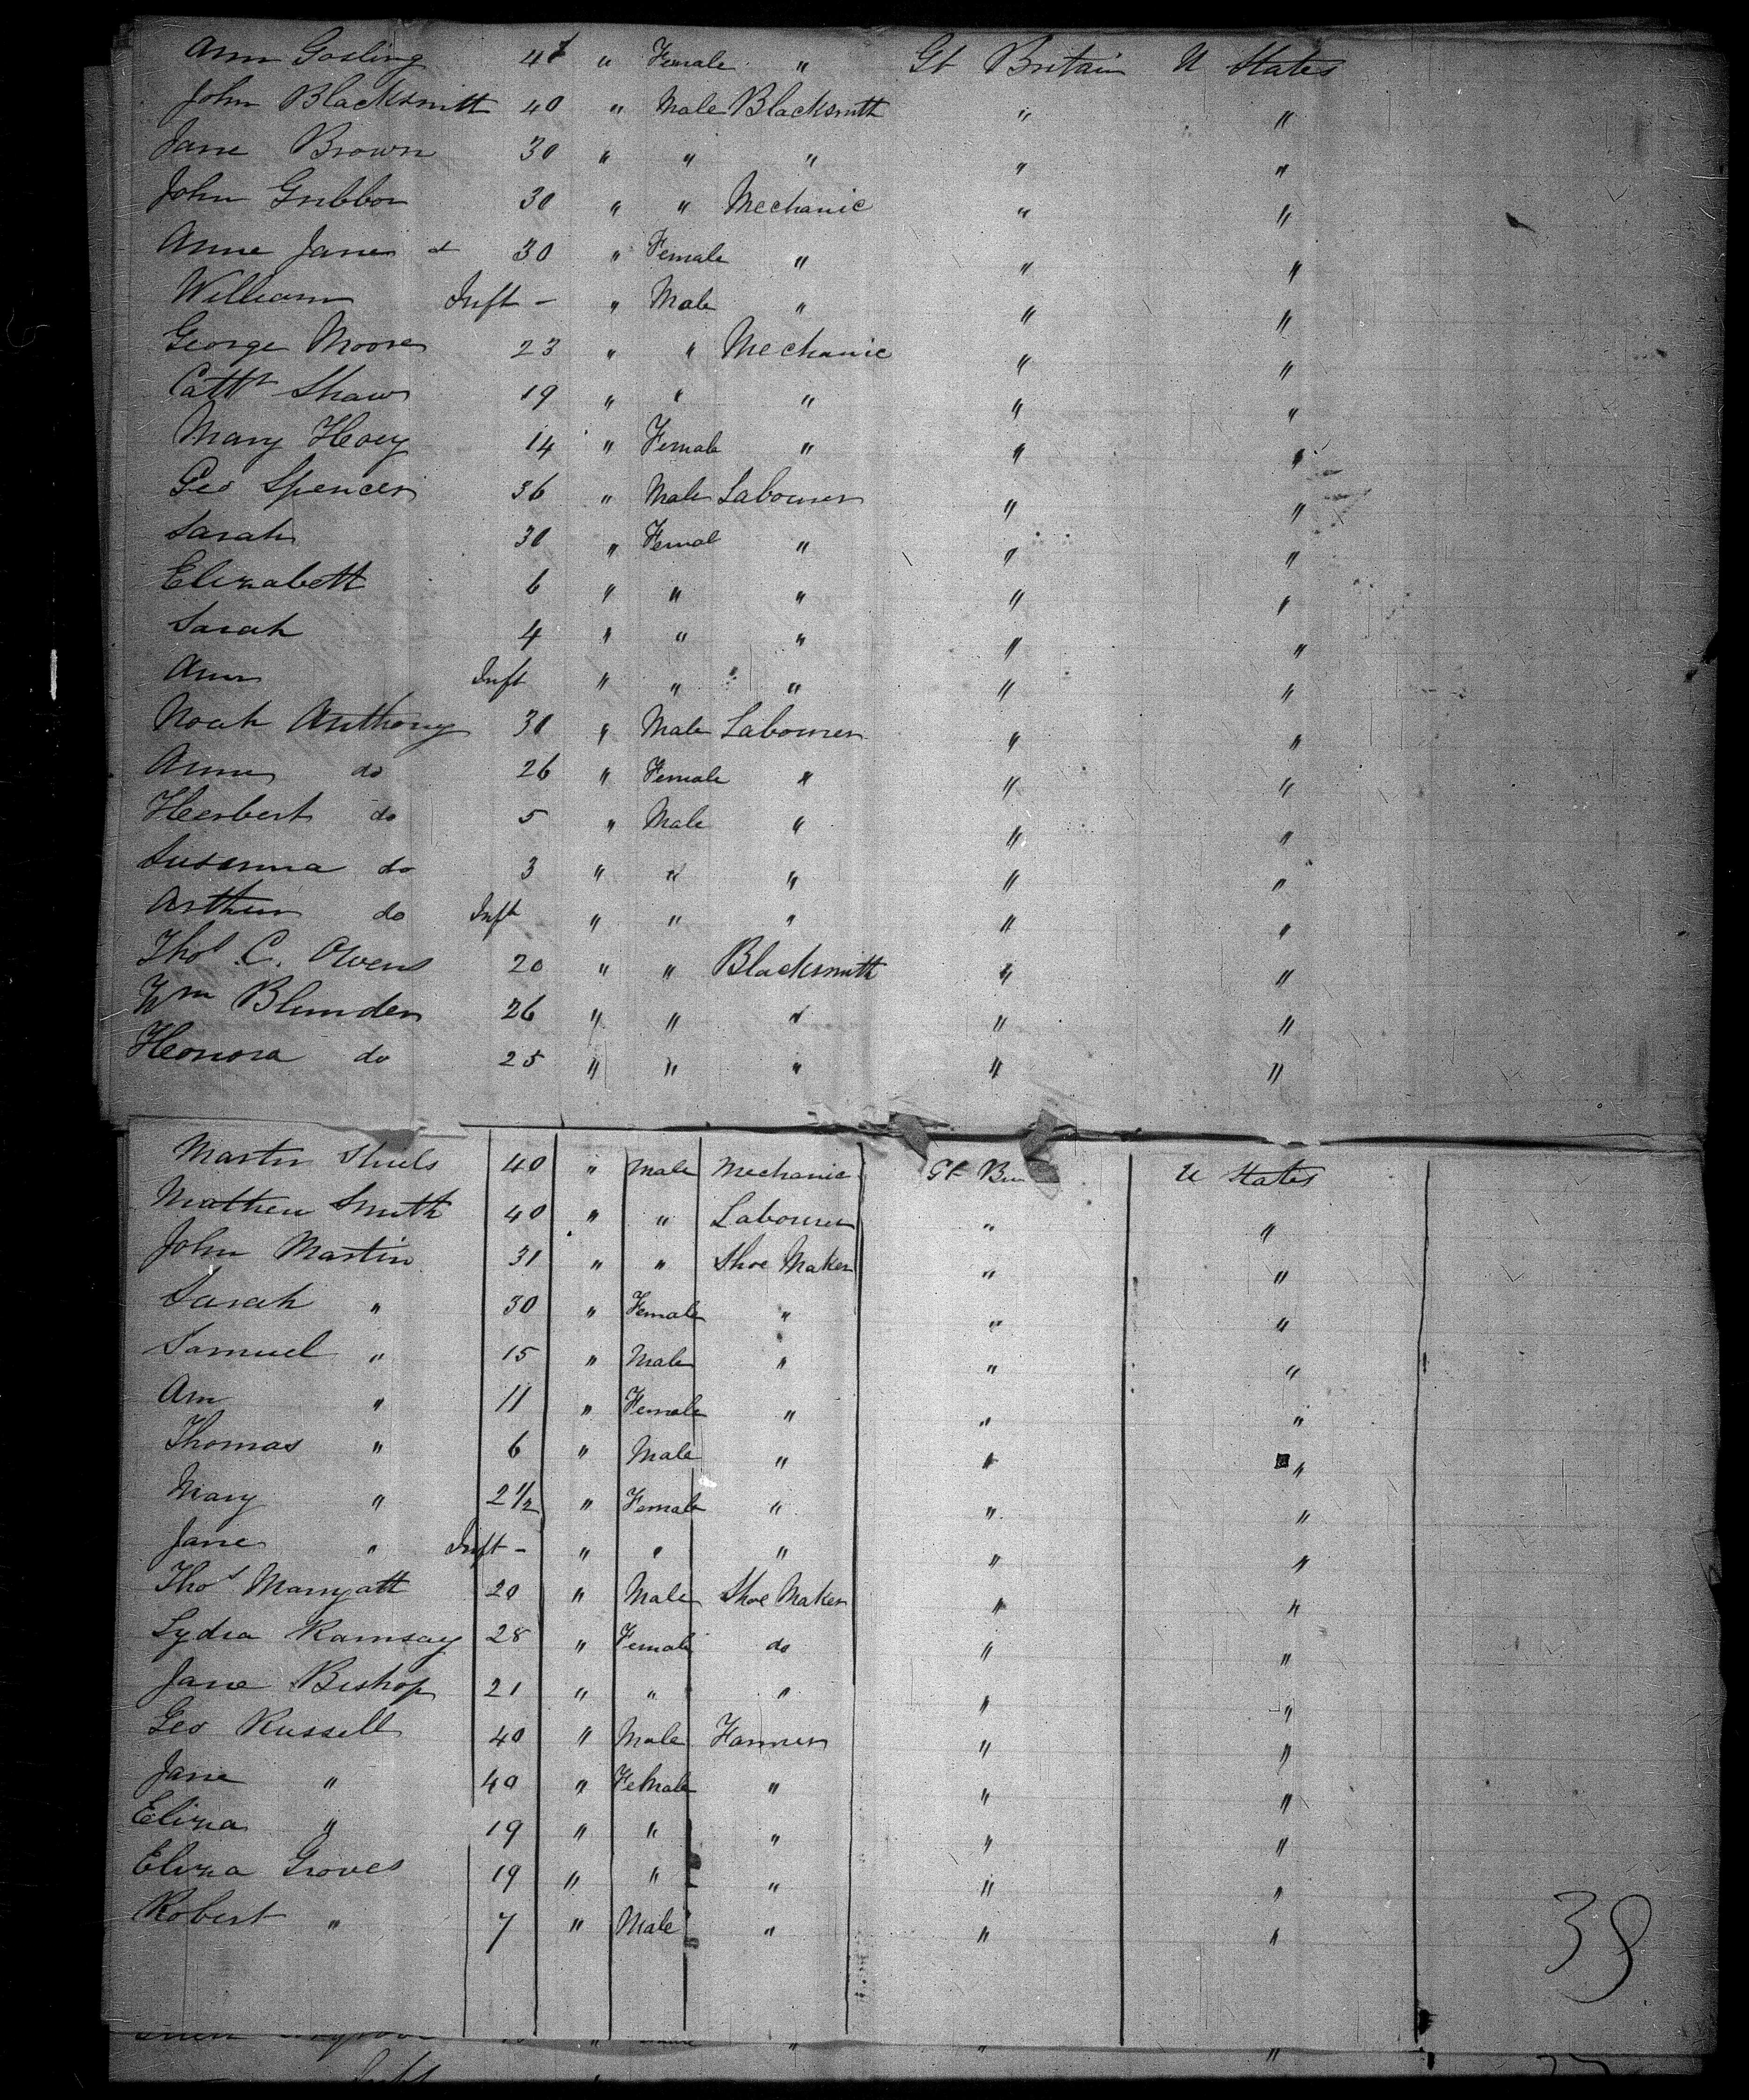 Ann Gosling 4 " Female " Gt Britain U States
John Blacksmith 40 " Male Blacksmith " "
Jane Brown 30 " " " " "
John Gribbon 30 " " Mechanic " "
Anne Jane do 30 " Female " " "
William Inft - " Male " " "
George Moore 23 " " Mechanic " "
Cathr Shaw 19 " " " " "
Mary Hoey 14 " Female " " "
Geo Spencer 36 " Male Labourer " "
Sarah 30 " Femal " " "
Elizabeth 6 " " " " "
Sarah 4 " " " " "
Ann Inft " " " " "
Noah Anthony 30 " Male Labourer " "
Anne do 26 " Female " " "
Herbert do 5 " Male " " "
Susanna do 3 " " " " "
Arthur do Inft " " " " "
Thos C. Owens 20 " " Blacksmith " "
Wm Blunden 26 " " " " "
Honora do 25 " " " " "
Martin Shiels 40 " Male Mechanic Gt U States
Mathew Smith 40 " " Labourer " "
John Martin 31 " " Shoe Maker " "
Sarah " 30 " Female " " "
Samuel " 15 " Male " " "
Ann " 11 " Female " " "
Thomas " 6 " Male " " "
Mary " 2 1/2 " Female " " "
Jane " Inft - " " " " "
Thos Marryatt 20 " Male Shoe Maker " "
Lydia Ramsay 28 " Female do " "
Jane Bishop 21 " " " " "
Geo Russell 40 " Male Farmer " "
Jane " 40 " Female " " "
Eliza " 19 " " " " "
Eliza Groves 19 " " " " "
Robert " 7 " Male " " "
38